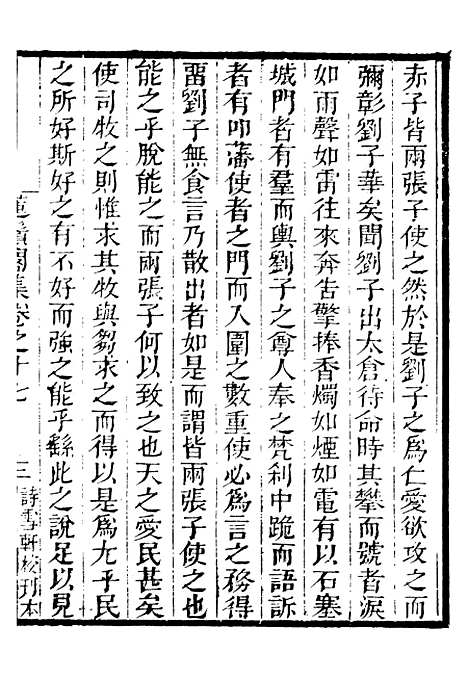 赤子皆兩張子使之然於是劉子之為仁愛欲攻之而
彌彰劉子華矣聞劉子出太倉待命時其攀而號者淚
如雨聲如雷往來奔告擎捧香燭如煙如電有以石塞
城門者有羣而輿劉子之尊人奉之梵刹中跪而語訴
者有叩藩使者之門而入圍之數重使必為言之務得
畱劉子無食言乃散出者如是而謂皆兩張子使之也
能之乎脫能之而兩張子何以致之也天之愛民甚矣
使司牧之則惟求其牧與芻求之而得以是為尢乎民
之所好斯好之有不好而強之能乎繇此之說足以見
集卷之十七
三
詩雪軒校刊本